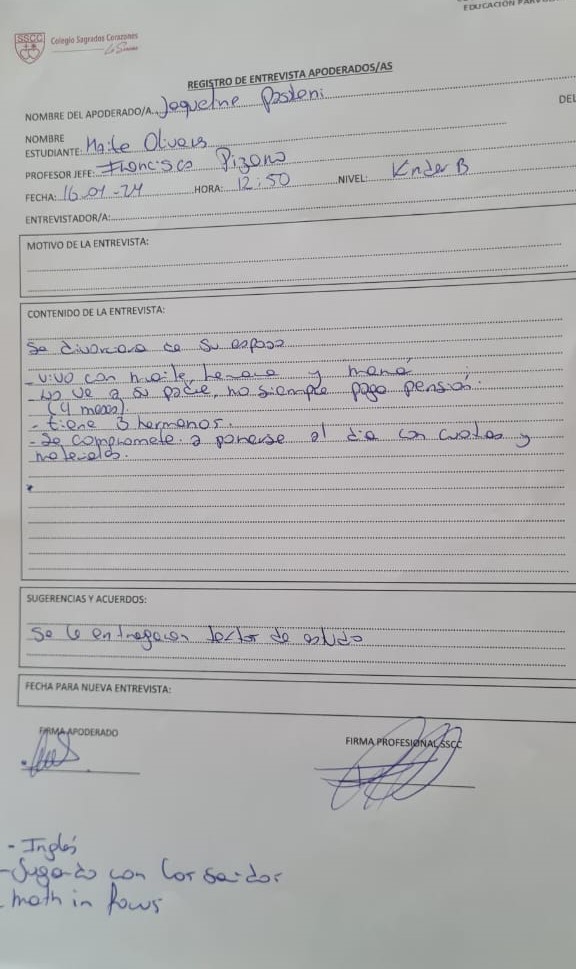 EDUCACIÓN PARV
SSCC
Colegio Sagrados Corazones
REGISTRO DE ENTREVISTA APODERADOS/AS
NOMBRE DEL APODERADO/A: Jaqueline Pasteni
DEL
NOMBRE
ESTUDIANTE: Maite Olivares
PROFESOR JEFE: Francisco Pizarro
FECHA: 16-01-24 HORA: 12:50 NIVEL: Knder B
ENTREVISTADOR/A:
MOTIVO DE LA ENTREVISTA:
CONTENIDO DE LA ENTREVISTA:
Se divorciara de su esposo
- vive con maite, hermano y mamá
- no ve a su padre, no siempre paga pensión.
(4 meses).
- tiene 3 hermanos.
- Se compromete a ponerse al dia con cuotas y
materiales.
SUGERENCIAS Y ACUERDOS:
Se le entregaron textos de estudio
FECHA PARA NUEVA ENTREVISTA:
FIRMA APODERADO
FIRMA PROFESIONAL SSCC
- Inglés
- Jugando con los sonidos
- math in focus